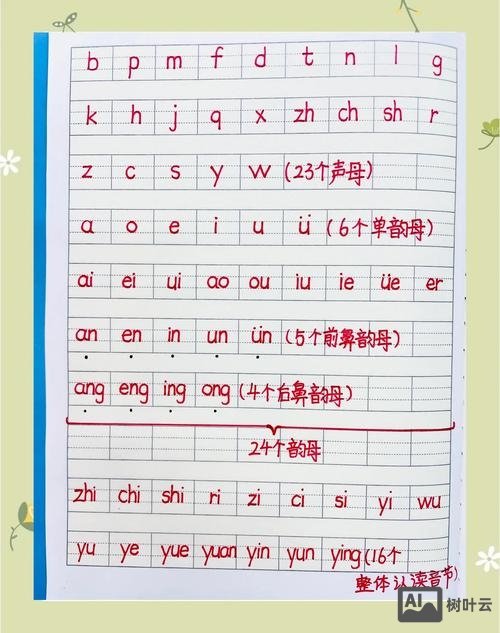 b p m f d t n l g
k h j q x zh ch sh r
z c s y w (23个声母)
a o e i u ü (6个单韵母)
ai ei ui ao ou iu ie üe er
an en in un ün (5个前鼻韵母)
ang eng ing ong (4个后鼻韵母)
24个韵母
zhi chi shi ri zi ci si yi wu
yu ye yue yuan yin yun ying (16个
整体认读音节)
AI 树叶云